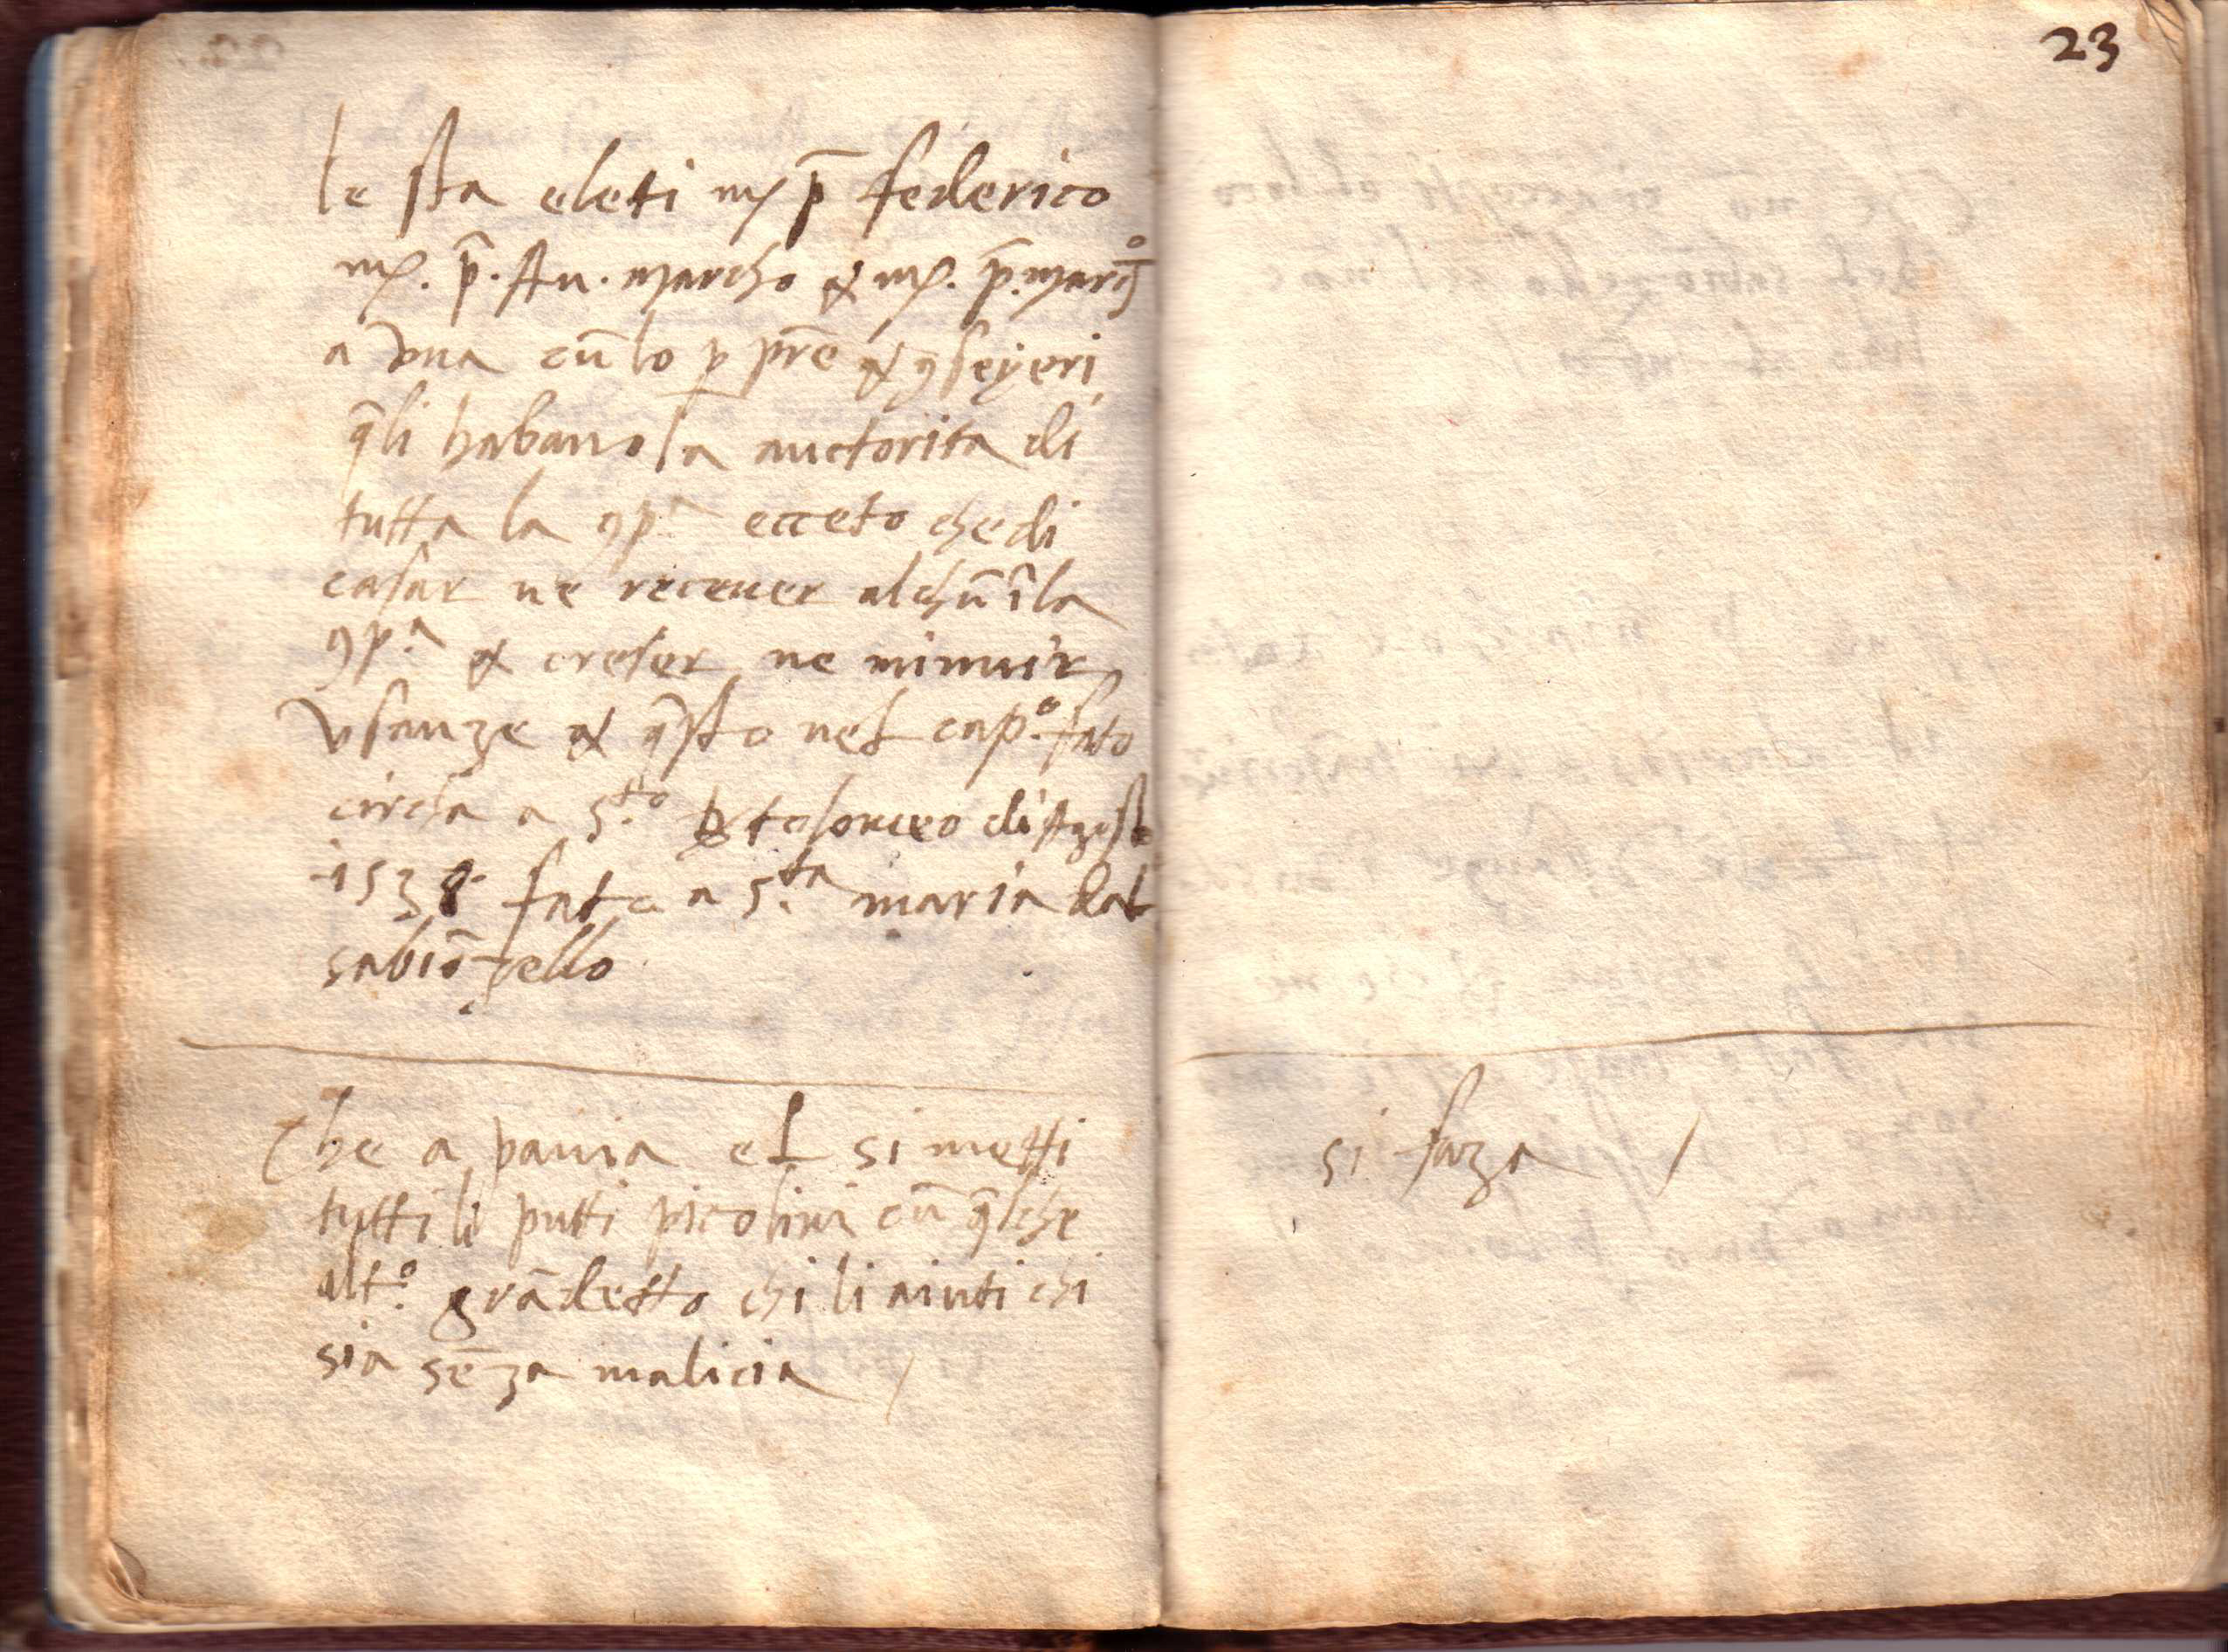 le sta eleti m. p̄ federico
m. p̄. An. marcho & m. p̄. march°
a vna cū lo p prē & ꝯseyeri
q̄li habano la auctorita di
tutta la ꝯpᵃ ecceto che di
casar ne receuer alchū ī la
ꝯpᵃ & creser ne minuir
vsanze & q̄sto nel cap° fato
circha a s.to bartolomeo di Agosto
1538 fato a s.ta maria dal
sabiōzello
Che a pauia el si metti
tutti li putti picolini cū q̄lche
alt° grādetto chi li aiuti chi
sia sēza malicia /
23
si faza /